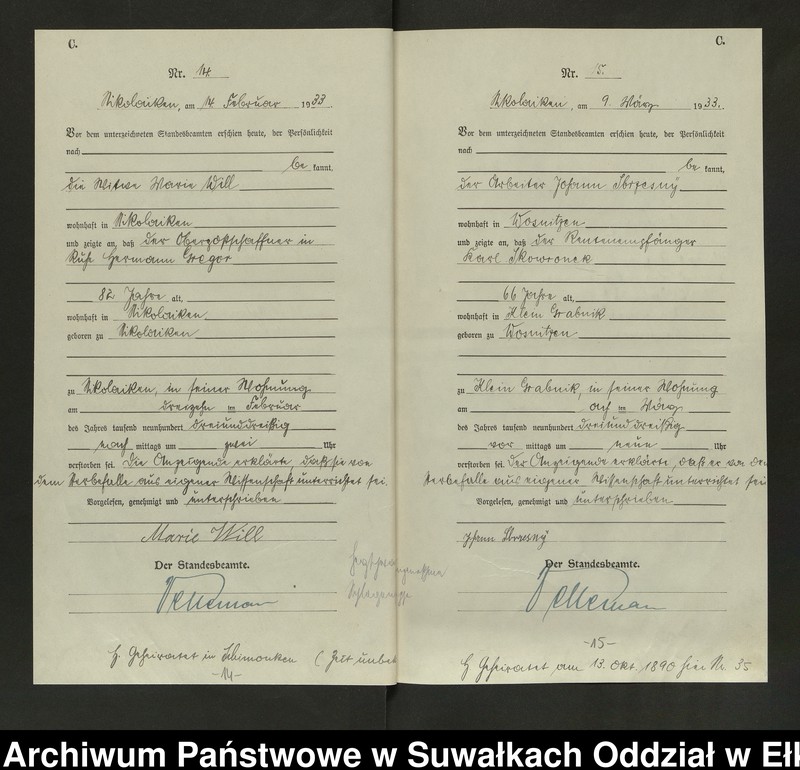 C.
Nr. 14
Nikolaiken, am 14 Februar 1933
Vor dem unterzeichneten Standesbeamten erschien heute, der Persönlichkeit
nach
be kannt,
die Witwe Marie Will
wohnhaft in Nikolaiken
und zeigte an, daß der Oberpostschaffner in
Ruhe Hermann Gregor
82 Jahre alt,
wohnhaft in Nikolaiken
geboren zu Nikolaiken
zu Nikolaiken, in seiner Wohnung
am dreizehn im Februar
des Jahres tausend neunhundert dreiunddreißig
nach mittags um zwei Uhr
verstorben sei. Die Anzeigende erklärte, daß sie von
dem Sterbefalle aus eigener Wissenschaft unterrichtet sei.
Vorgelesen, genehmigt und unterschrieben
Marie Will
Der Standesbeamte.
H. Geheiratet in Schimonken (Zeit unbek
-14-
C.
Nr. 15.
Nikolaiken, am 9. März 1933.
Vor dem unterzeichneten Standesbeamten erschien heute, der Persönlichkeit
nach
be kannt,
der Arbeiter Johann
wohnhaft in Wosnitzen
und zeigte an, daß der Rentenempfänger
Karl Skowronek
66 Jahre alt,
wohnhaft in Klein Grabnik
geboren zu Wosnitzen
zu Klein Grabnik, in seiner Wohnung
am acht im März
des Jahres tausend neunhundert dreiunddreißig
vor mittags um neun Uhr
verstorben sei. Der Anzeigende erklärte, daß er von dem
Sterbefalle aus eigener Wissenschaft unterrichtet sei
Vorgelesen, genehmigt und unterschrieben
Johann
Der Standesbeamte.
-15-
H. Geheiratet am 13. Okt. 1890 hier Nr. 35
Archiwum Państwowe w Suwałkach Oddział w Ełk